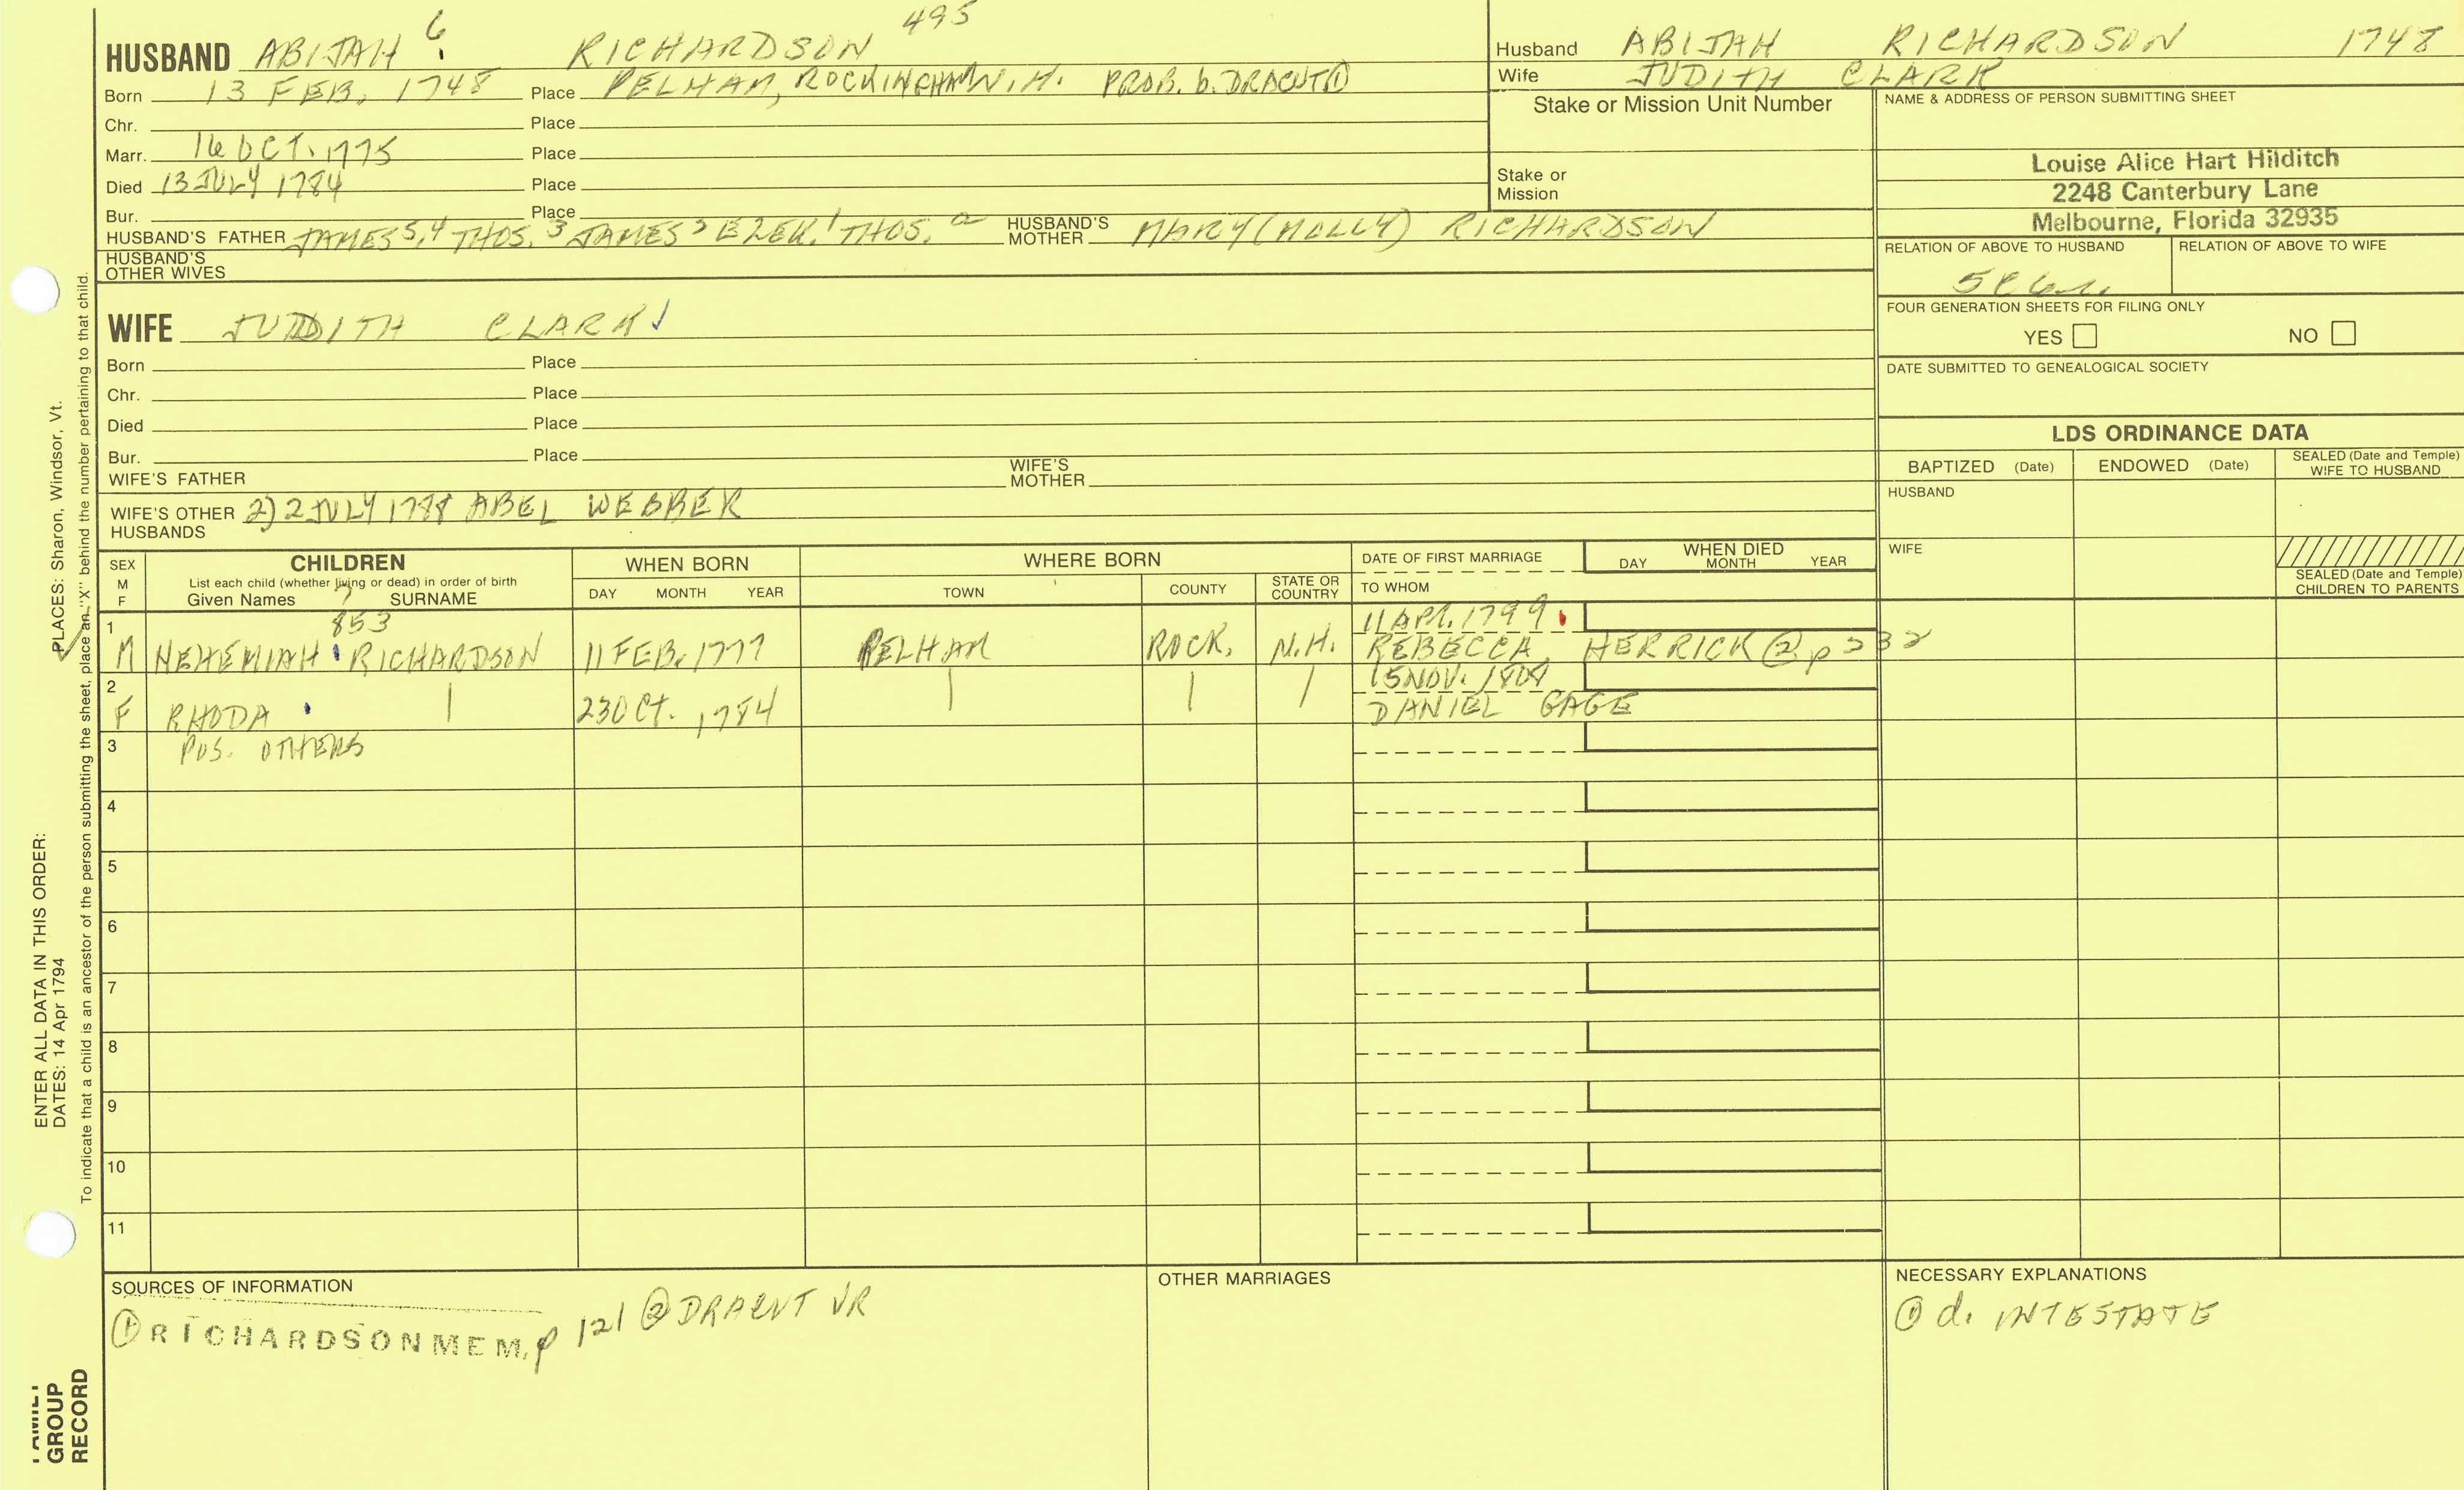 HUSBAND ABIJAH 6 RICHARDSON 495
Born 13 FEB. 1748 Place PELHAM, ROCKINGHAM N.H. PROB. b. DRACUT ①
Chr. Place
Marr. 16 OCT. 1775 Place
Died 13 JULY 1784 Place
Bur. Place
HUSBAND'S FATHER JAMES 5, 4 THOS. 3 JAMES 2 EZEK. 1 THOS. a HUSBAND'S MOTHER MARY (MOLLY) RICHARDSON
HUSBAND'S OTHER WIVES
Husband ABIJAH RICHARDSON 1748
Wife JUDITH CLARK
Stake or Mission Unit Number
Stake or Mission
NAME & ADDRESS OF PERSON SUBMITTING SHEET
Louise Alice Hart Hilditch
2248 Canterbury Lane
Melbourne, Florida 32935
RELATION OF ABOVE TO HUSBAND RELATION OF ABOVE TO WIFE
FOUR GENERATION SHEETS FOR FILING ONLY
YES NO
DATE SUBMITTED TO GENEALOGICAL SOCIETY
WIFE JUDITH CLARK ✓
Born Place
Chr. Place
Died Place
Bur. Place
WIFE'S FATHER WIFE'S MOTHER
WIFE'S OTHER HUSBANDS 2) 2 JULY 1788 ABEL WEBBER
LDS ORDINANCE DATA
BAPTIZED (Date) ENDOWED (Date) SEALED (Date and Temple) WIFE TO HUSBAND
HUSBAND
WIFE
SEALED (Date and Temple) CHILDREN TO PARENTS
SEX M F
CHILDREN
List each child (whether living or dead) in order of birth
Given Names 7 SURNAME
WHEN BORN
DAY MONTH YEAR
WHERE BORN
TOWN COUNTY STATE OR COUNTRY
DATE OF FIRST MARRIAGE
TO WHOM
WHEN DIED
DAY MONTH YEAR
1 853 11 APR. 1799
M NEHEMIAH RICHARDSON 11 FEB. 1777 PELHAM ROCK. N.H. REBECCA HERRICK ② p 232
2 15 NOV. 1804
F RHODA | 23 OCt. 1784 | | | DANIEL GAGE
3 POS. OTHERS
4
5
6
7
8
9
10
11
SOURCES OF INFORMATION
① RICHARDSON MEM. p 121 ② DRACUT VR
OTHER MARRIAGES
NECESSARY EXPLANATIONS
① d. INTESTATE
ENTER ALL DATA IN THIS ORDER:
DATES: 14 Apr 1794 PLACES: Sharon, Windsor, Vt.
To indicate that a child is an ancestor of the person submitting the sheet, place an "X" behind the number pertaining to that child.
FAMILY
GROUP
RECORD